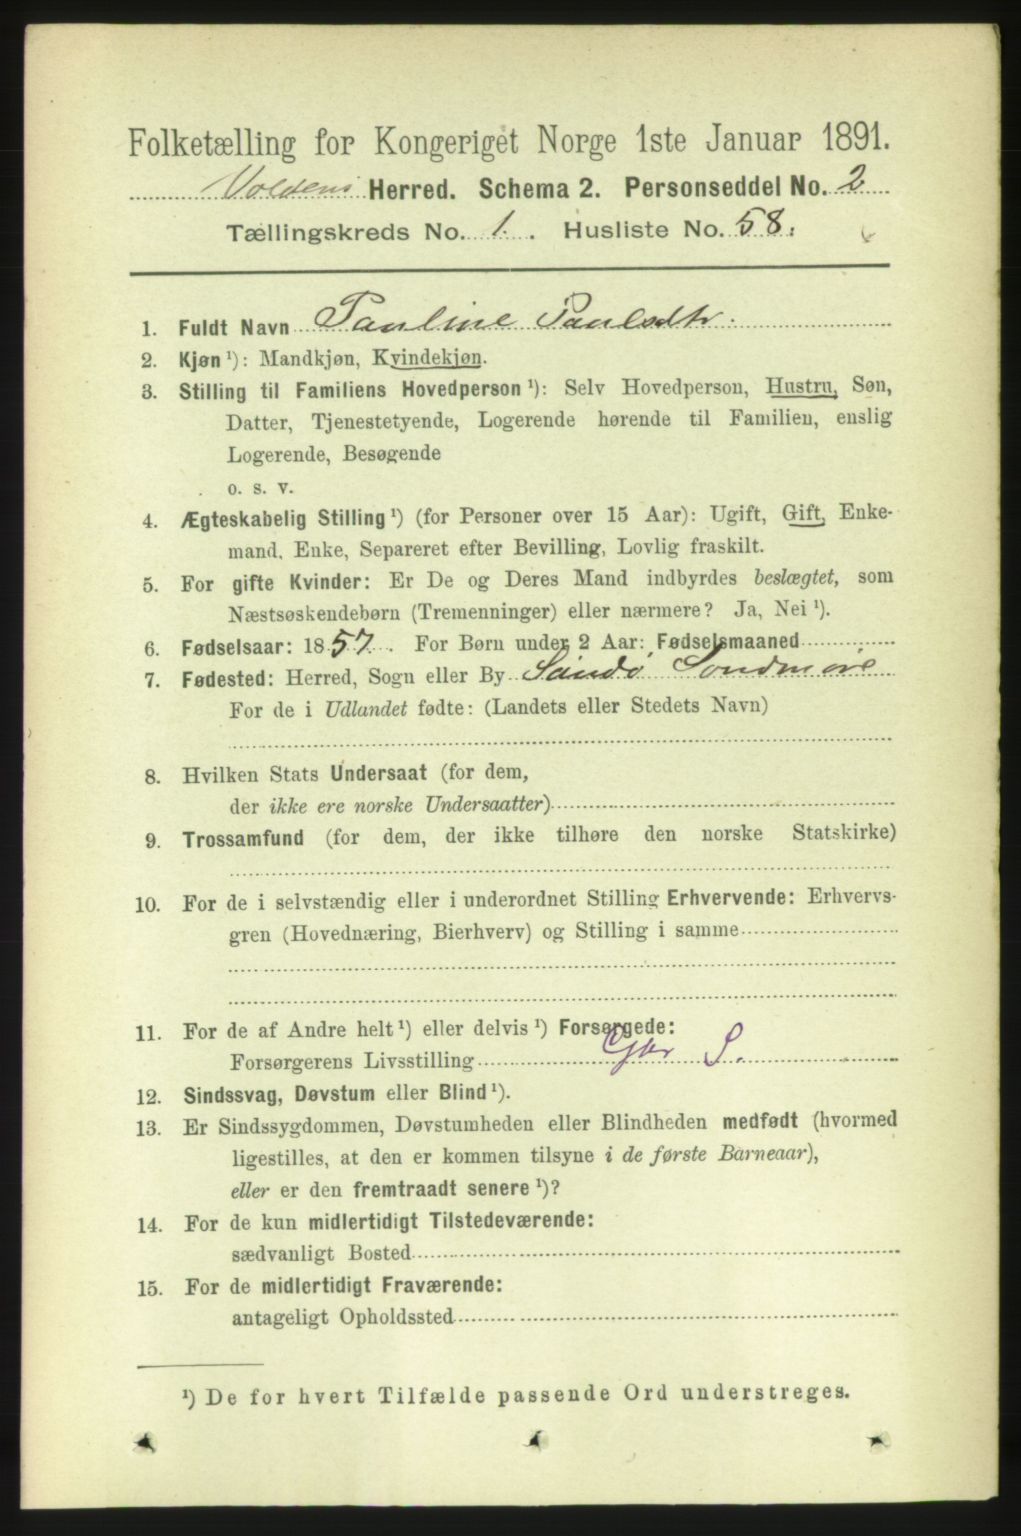 Folketælling for Kongeriget Norge 1ste Januar 1891.
Voldens Herred. Schema 2. Personseddel No. 2
Tællingskreds No. 1. Husliste No. 58.
1. Fuldt Navn Pauline Paulsdtr.
2. Kjøn ¹): Mandkjøn, Kvindekjøn.
3. Stilling til Familiens Hovedperson ¹): Selv Hovedperson, Hustru, Søn,
Datter, Tjenestetyende, Logerende hørende til Familien, enslig
Logerende, Besøgende
o. s. v.
4. Ægteskabelig Stilling ¹) (for Personer over 15 Aar): Ugift, Gift, Enke-
mand, Enke, Separeret efter Bevilling, Lovlig fraskilt.
5. For gifte Kvinder: Er De og Deres Mand indbyrdes beslægtet, som
Næstsøskendebørn (Tremenninger) eller nærmere? Ja, Nei ¹).
6. Fødselsaar: 1857. For Børn under 2 Aar: Fødselsmaaned
7. Fødested: Herred, Sogn eller By Sandø Søndmøre
For de i Udlandet fødte: (Landets eller Stedets Navn)
8. Hvilken Stats Undersaat (for dem,
der ikke ere norske Undersaatter)
9. Trossamfund (for dem, der ikke tilhøre den norske Statskirke)
10. For de i selvstændig eller i underordnet Stilling Erhvervende: Erhvervs-
gren (Hovednæring, Bierhverv) og Stilling i samme
11. For de af Andre helt ¹) eller delvis ¹) Forsørgede:
Forsørgerens Livsstilling Gbr S.
12. Sindssvag, Døvstum eller Blind ¹).
13. Er Sindssygdommen, Døvstumheden eller Blindheden medfødt (hvormed
ligestilles, at den er kommen tilsyne i de første Barneaar),
eller er den fremtraadt senere ¹)?
14. For de kun midlertidigt Tilstedeværende:
sædvanligt Bosted
15. For de midlertidigt Fraværende:
antageligt Opholdssted
¹) De for hvert Tilfælde passende Ord understreges.